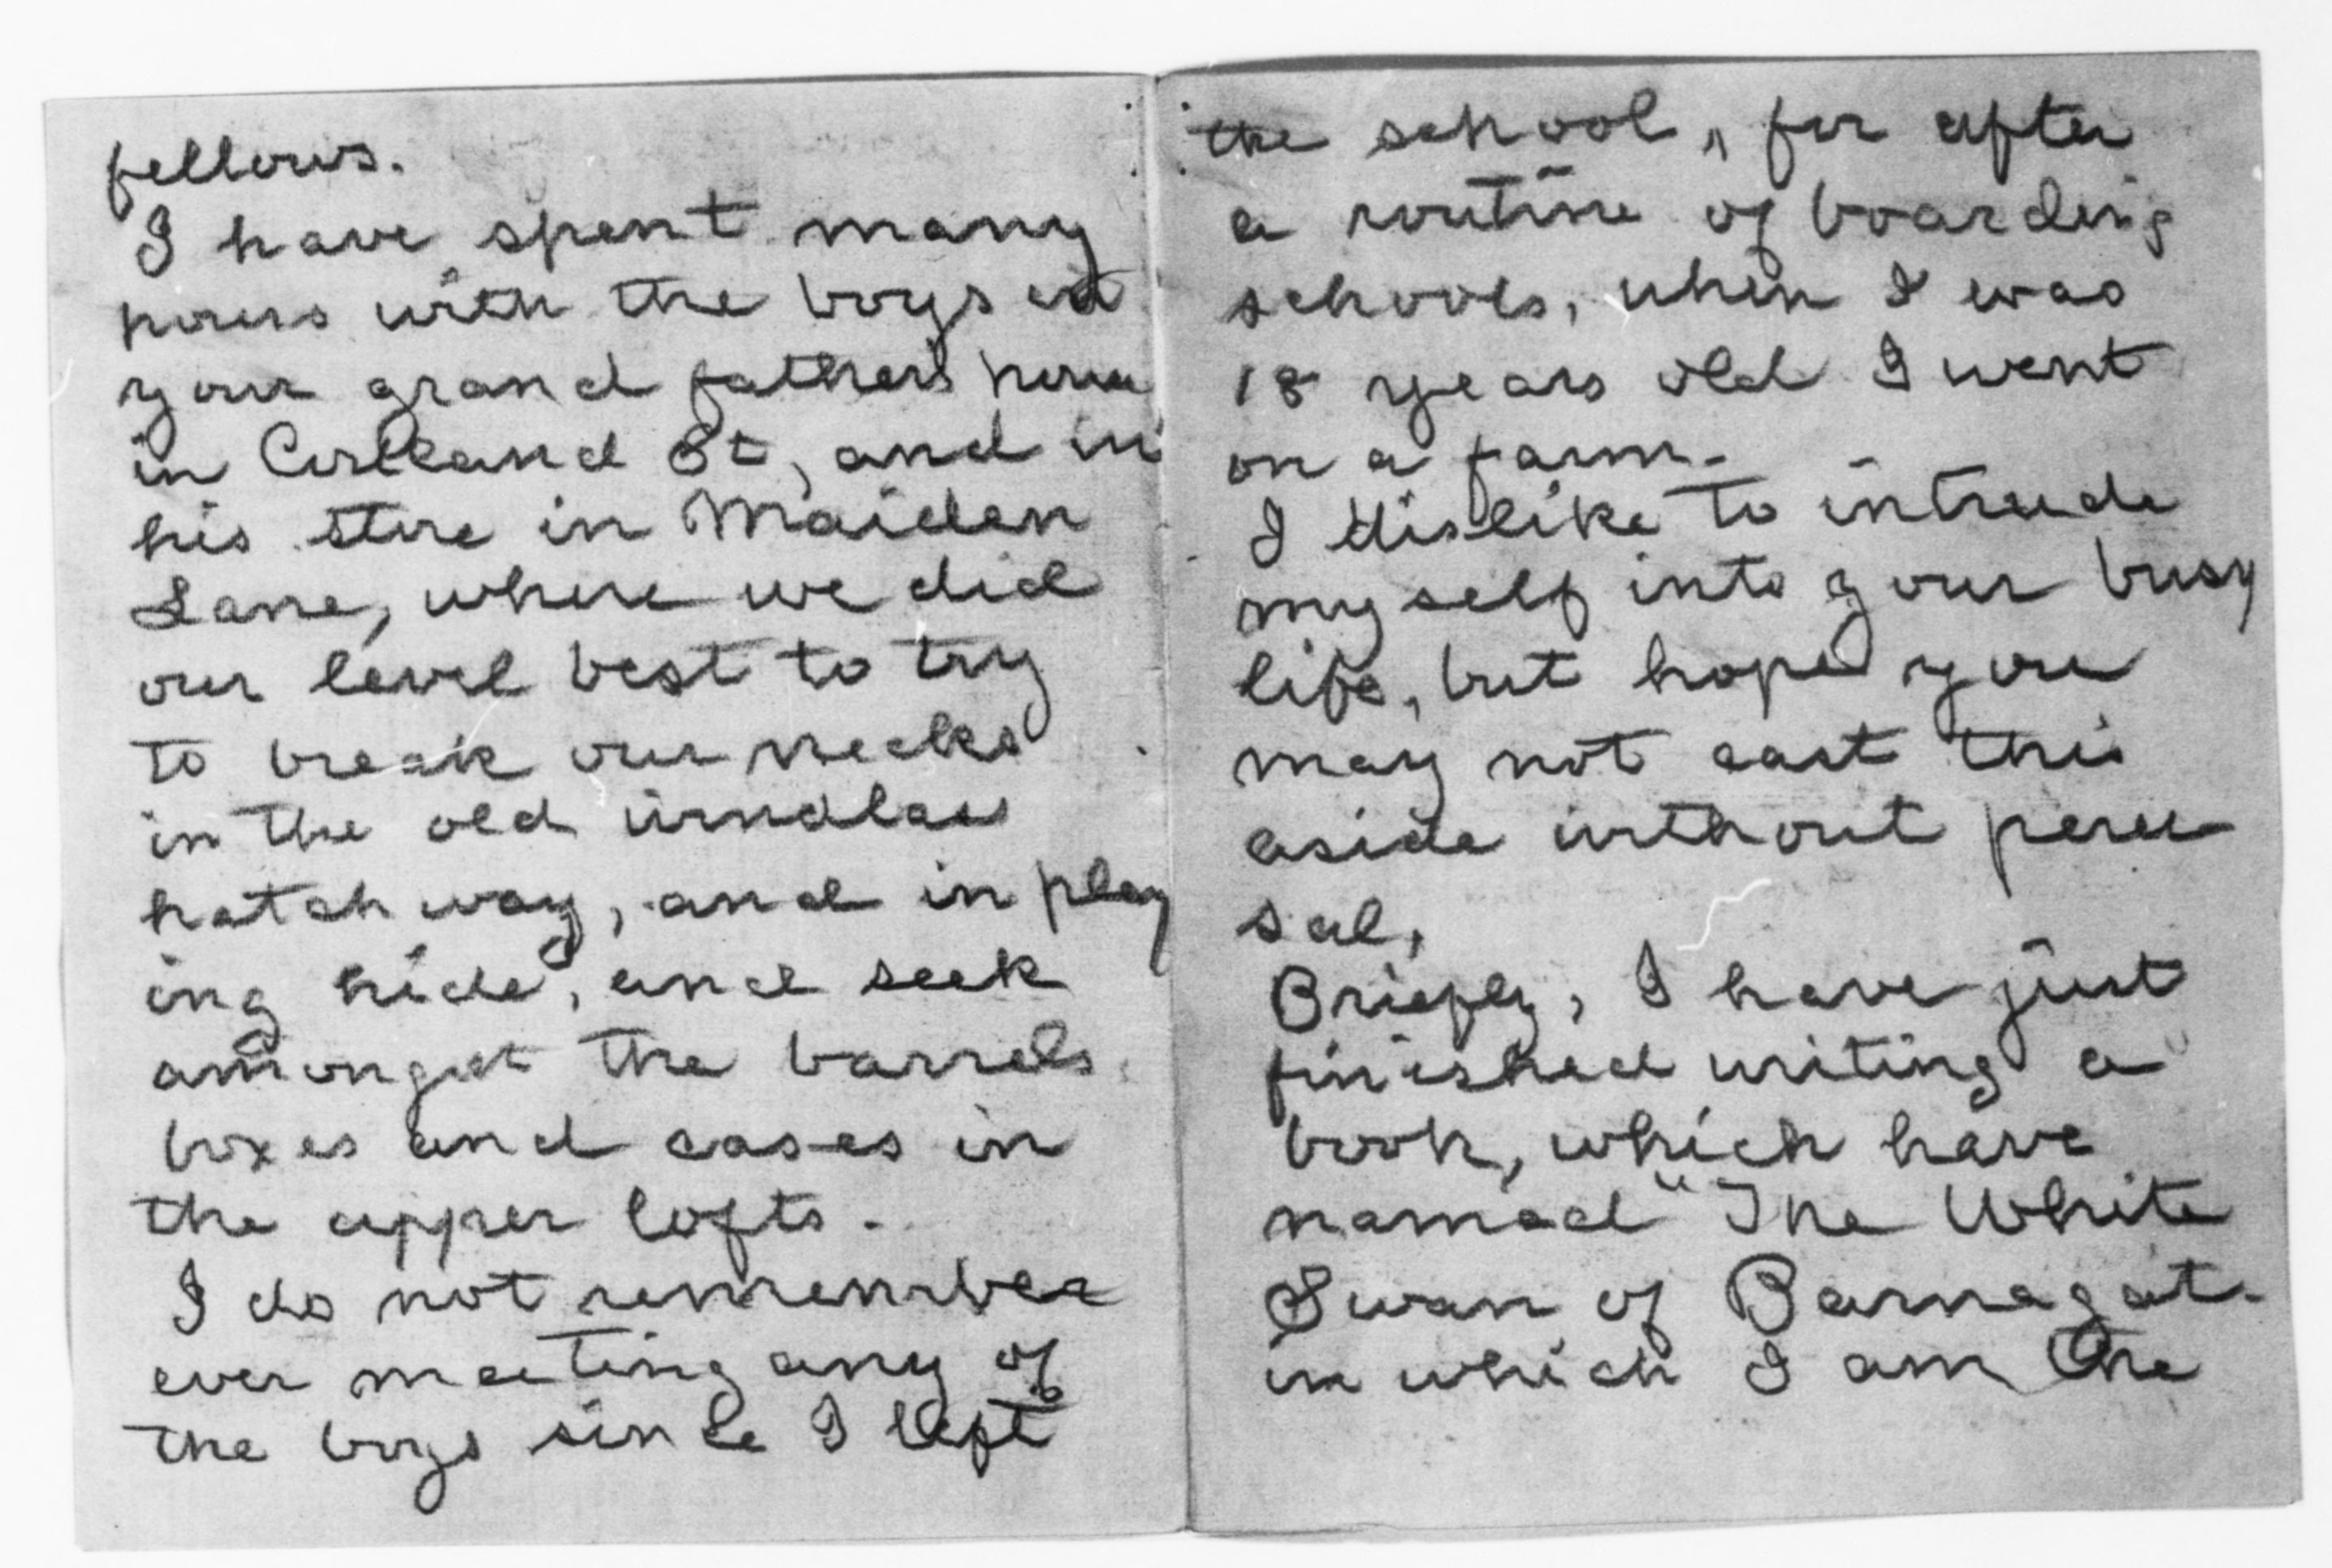 fellows.
I have spent many
hours with the boys at
your grand father's house
in Cortland St, and in
his store in Maiden
Lane, where we did
our level best to try
to break our necks
in the old windlass
hatch way, and in play
ing hide, and seek
amongst the barrels
boxes and cases in
the upper lofts.
I do not remember
ever meeting any of
the boys since I left
the school, for after
a routine of boarding
schools, when I was
18 years old I went
on a farm.
I dislike to intrude
myself into your busy
life, but hope you
may not cast this
aside without peru
sal,
Briefly, I have just
finished writing a
book, which have
named "The White
Swan of Barnegat.
in which I am the